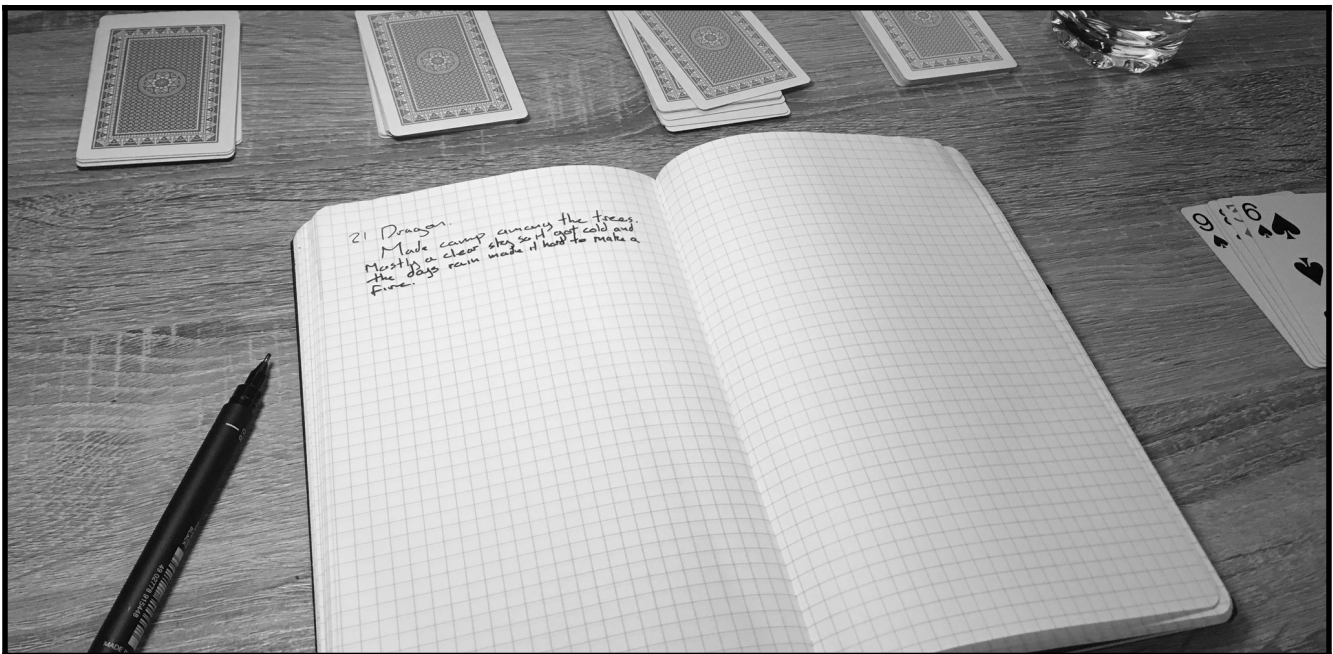 21 Dragon.
Made camp among the trees.
Mostly a clear sky so it got cold and
the days rain made it hard to make a
fire.
9
6
MADE